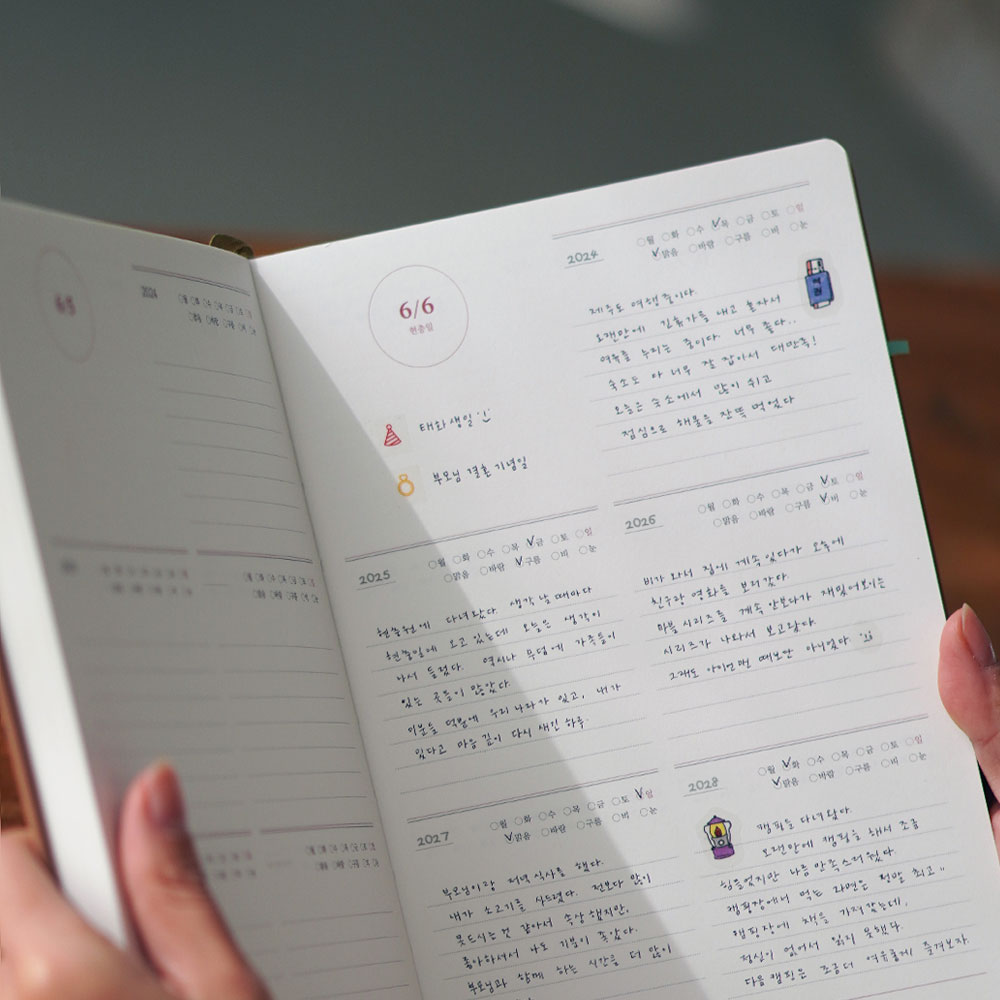 6/6
현충일
태화 생일
부모님 결혼 기념일
2024
월 화 수 목 금 토 일
맑음 바람 구름 비 눈
제주도 여행 중이다.
오랜만에 긴 휴가를 내고 혼자서
여유를 누리는 중이다. 너무 좋다..
숙소도 아 너무 잘 잡아서 대만족!
오늘은 숙소에서 많이 쉬고
점심으로 해물을 잔뜩 먹었다
2025
월 화 수 목 금 토 일
맑음 바람 구름 비 눈
현충원에 다녀왔다. 생각날 때마다
현충일에 오고 있는데 오늘은 생각이
나서 들렀다. 역시나 무덤에 가족들이
있는 곳들이 많았다.
이분들 덕분에 우리나라가 있고, 내가
있다고 마음 깊이 다시 새긴 하루.
2026
월 화 수 목 금 토 일
맑음 바람 구름 비 눈
비가 와서 집에 계속 있다가 오후에
친구랑 영화를 보러 갔다
마블 시리즈를 계속 안보다가 재밌어보이는
시리즈가 나와서 보고왔다.
그래도 아이언맨 때보단 아니었다.
2027
월 화 수 목 금 토 일
맑음 바람 구름 비 눈
부모님이랑 저녁 식사를 했다.
내가 소고기를 사드렸다. 전보다 많이
못드시는 것 같아서 속상했지만,
좋아하셔서 나도 기분이 좋았다.
부모님과 함께 하는 시간을 더 많이
2028
월 화 수 목 금 토 일
맑음 바람 구름 비 눈
캠핑을 다녀왔다.
오랜만에 캠핑을 해서 조금
힘들었지만 나름 만족스러웠다.
캠핑장에서 먹는 라면은 정말 최고"
캠핑장에 책을 가져갔는데,
정신이 없어서 읽지 못했다.
다음 캠핑은 조금 더 여유롭게 즐겨보자.